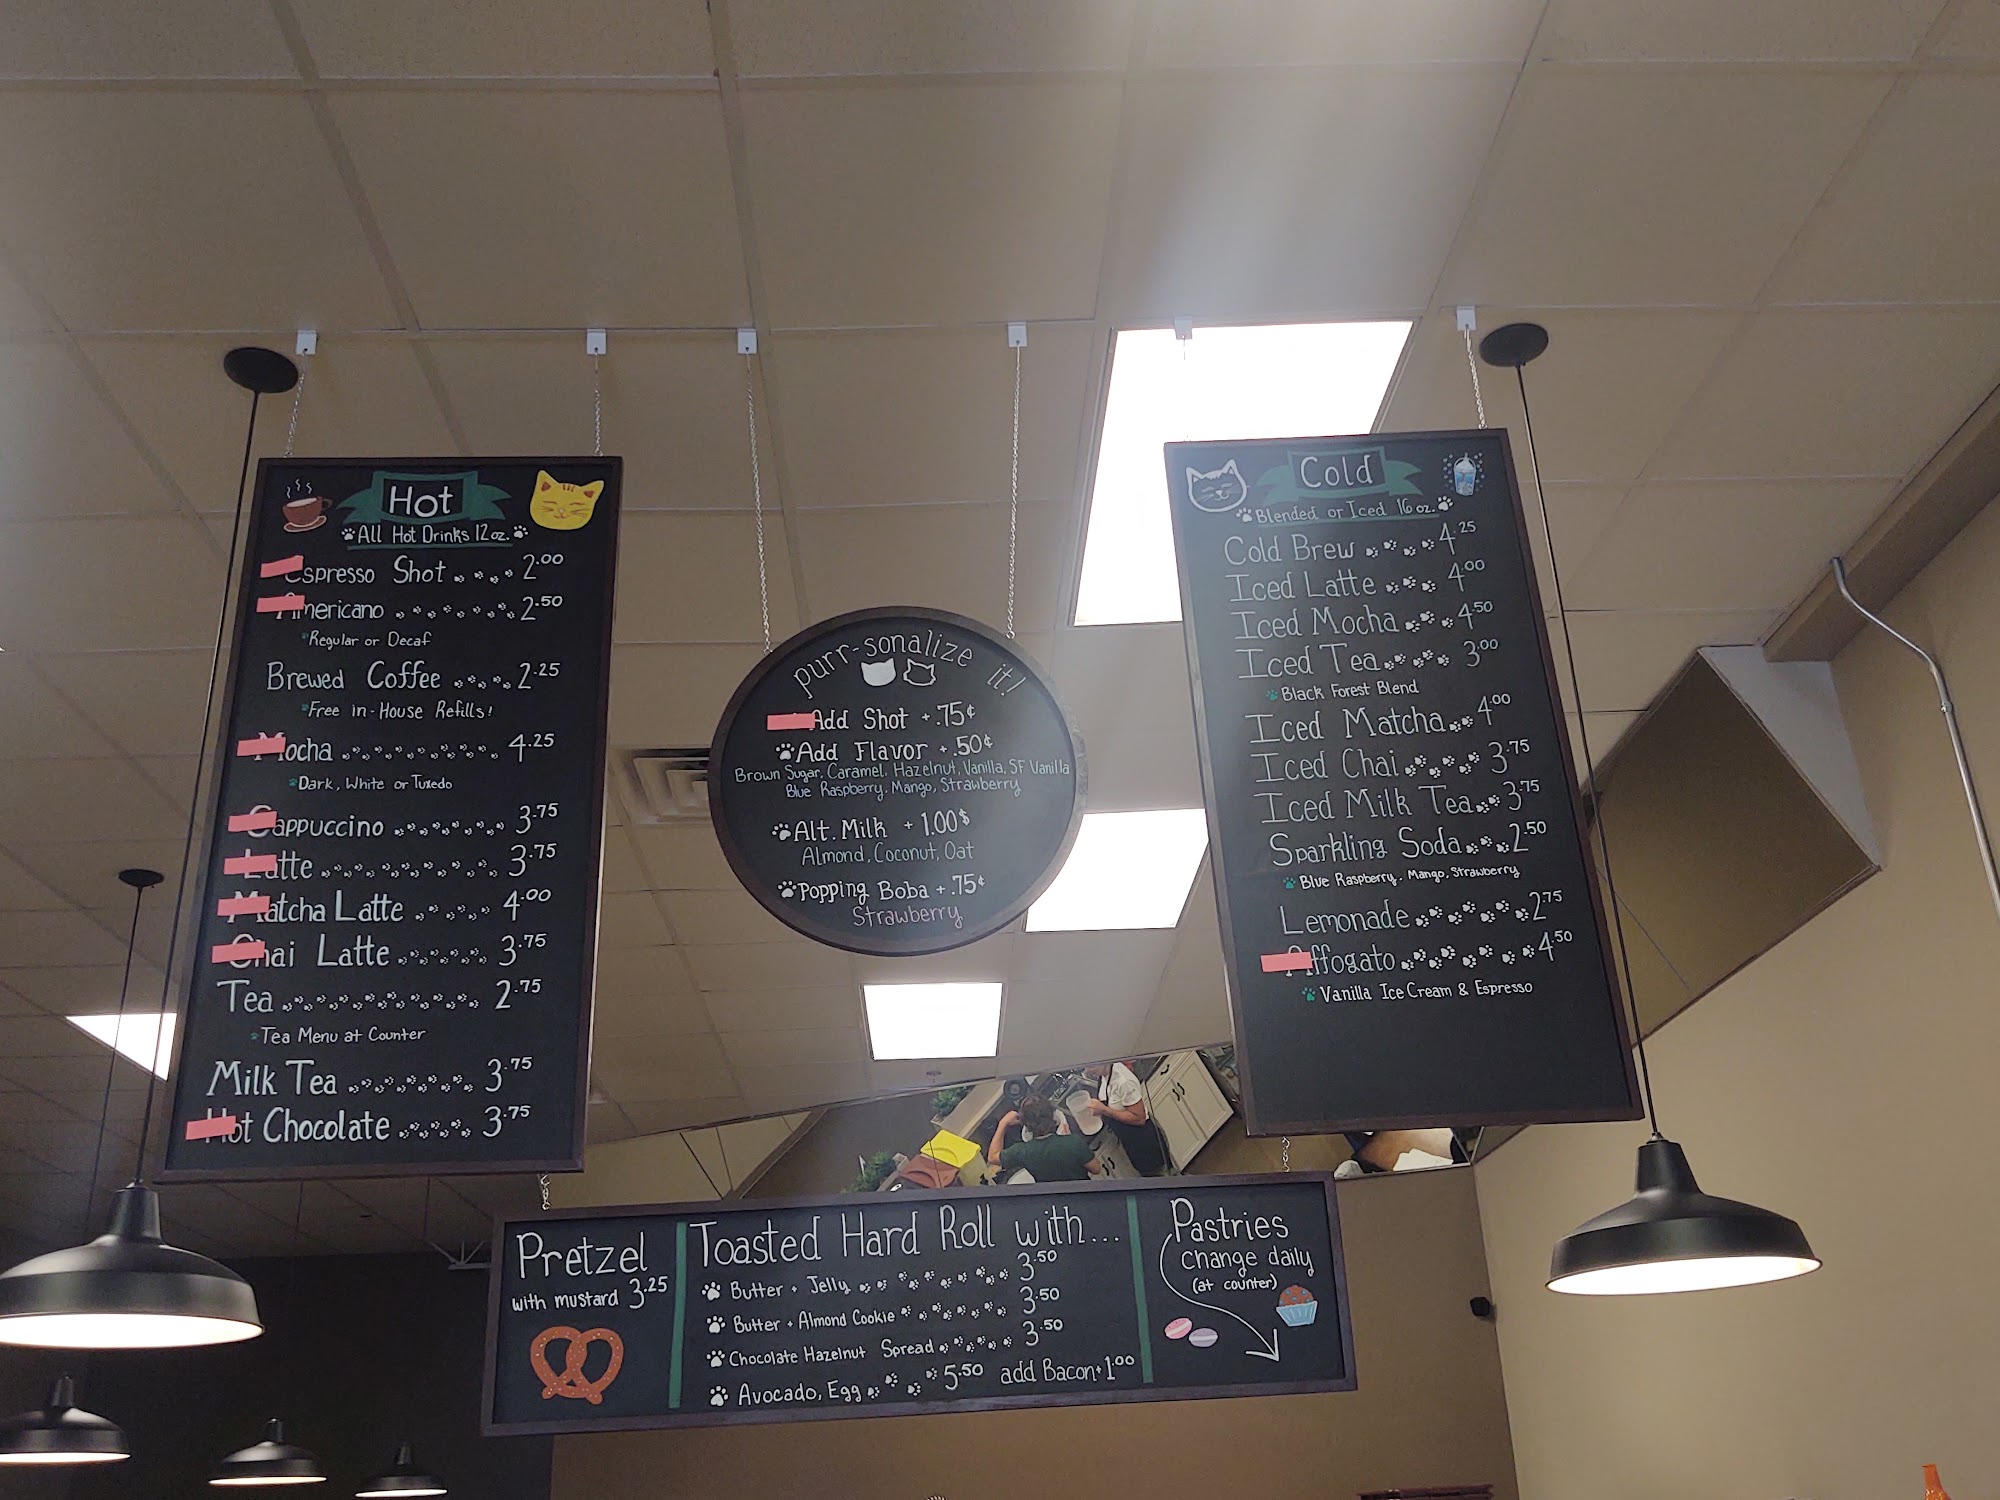 Hot
All Hot Drinks 12 oz.
Espresso Shot 2.00
Americano 2.50
Regular or Decaf
Brewed Coffee 2.25
Free in-House Refills!
Mocha 4.25
Dark, White or Tuxedo
Cappuccino 3.75
Latte 3.75
Matcha Latte 4.00
Chai Latte 3.75
Tea 2.75
Tea Menu at Counter
Milk Tea 3.75
Hot Chocolate 3.75
purr-sonalize it!
Add Shot +.75¢
Add Flavor +.50¢
Brown Sugar, Caramel, Hazelnut, Vanilla, SF Vanilla
Blue Raspberry, Mango, Strawberry
Alt. Milk +1.00$
Almond, Coconut, Oat
Popping Boba +.75¢
Strawberry
Cold
Blended or Iced 16 oz.
Cold Brew 4.25
Iced Latte 4.00
Iced Mocha 4.50
Iced Tea 3.00
Black Forest Blend
Iced Matcha 4.00
Iced Chai 3.75
Iced Milk Tea 3.75
Sparkling Soda 2.50
Blue Raspberry, Mango, Strawberry
Lemonade 2.75
Affogato 4.50
Vanilla Ice Cream & Espresso
Pretzel
with mustard 3.25
Toasted Hard Roll with...
Butter + Jelly 3.50
Butter + Almond Cookie 3.50
Chocolate Hazelnut Spread 3.50
Avocado, Egg 5.50 add Bacon +1.00
Pastries
change daily
(at counter)